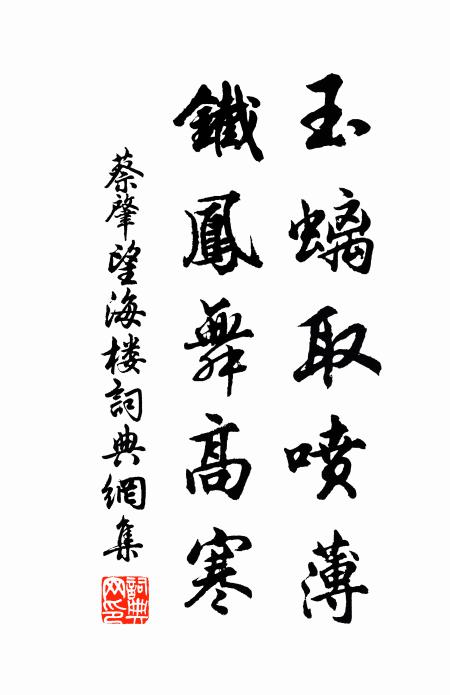 玉螭取喷薄
鐵鳳舞高寒
蔡肇望海楼詞典網集
詞典网印